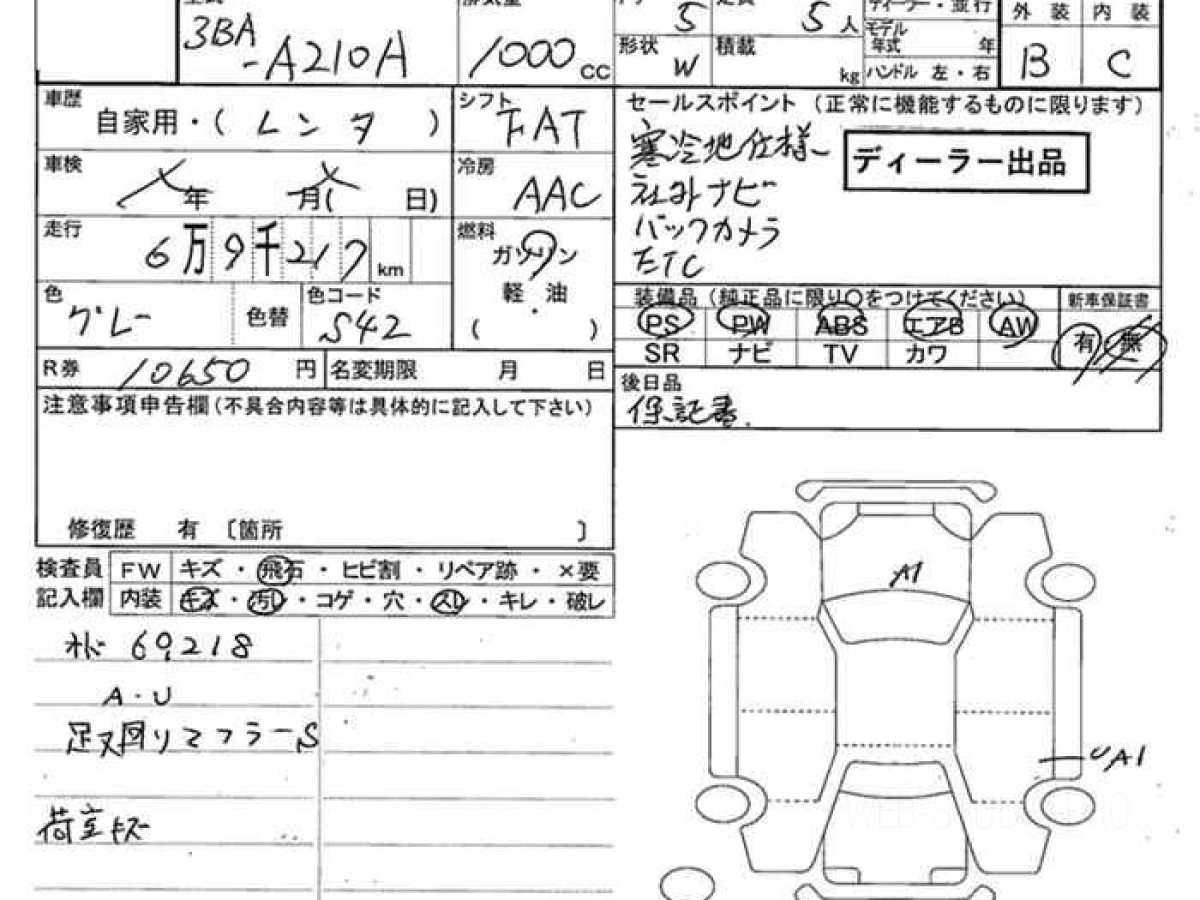 3BA
-A210A
1000 cc
5
5人
ディーラー・並行
モデル
年式 年
ハンドル 左・右
外装 内装
B C
形状 W
積載 kg
車歴 自家用・(レンタ)
シフト FAT
車検 年 月( 日)
冷房 AAC
走行 6万9千217 km
燃料 ガソリン
軽・油
( )
色 グレー
色替
色コード S42
R券 10650 円
名変期限 月 日
セールスポイント(正常に機能するものに限ります)
寒冷地仕様
ディーラー出品
社外ナビ
バックカメラ
ETC
装備品(純正品に限り○をつけてください)
新車保証書
PS PW ABS エアB AW
有・無
SR ナビ TV カワ
後日品
保証書.
注意事項申告欄(不具合内容等は具体的に記入して下さい)
修復歴 有 〔箇所 〕
検査員
記入欄
FW キズ・飛石・ヒビ割・リペア跡・×要
内装 キズ・汚レ・コゲ・穴・スレ・キレ・破レ
69,218
A・U
足又回リマフラーS
荷室キズ
A1
UA1